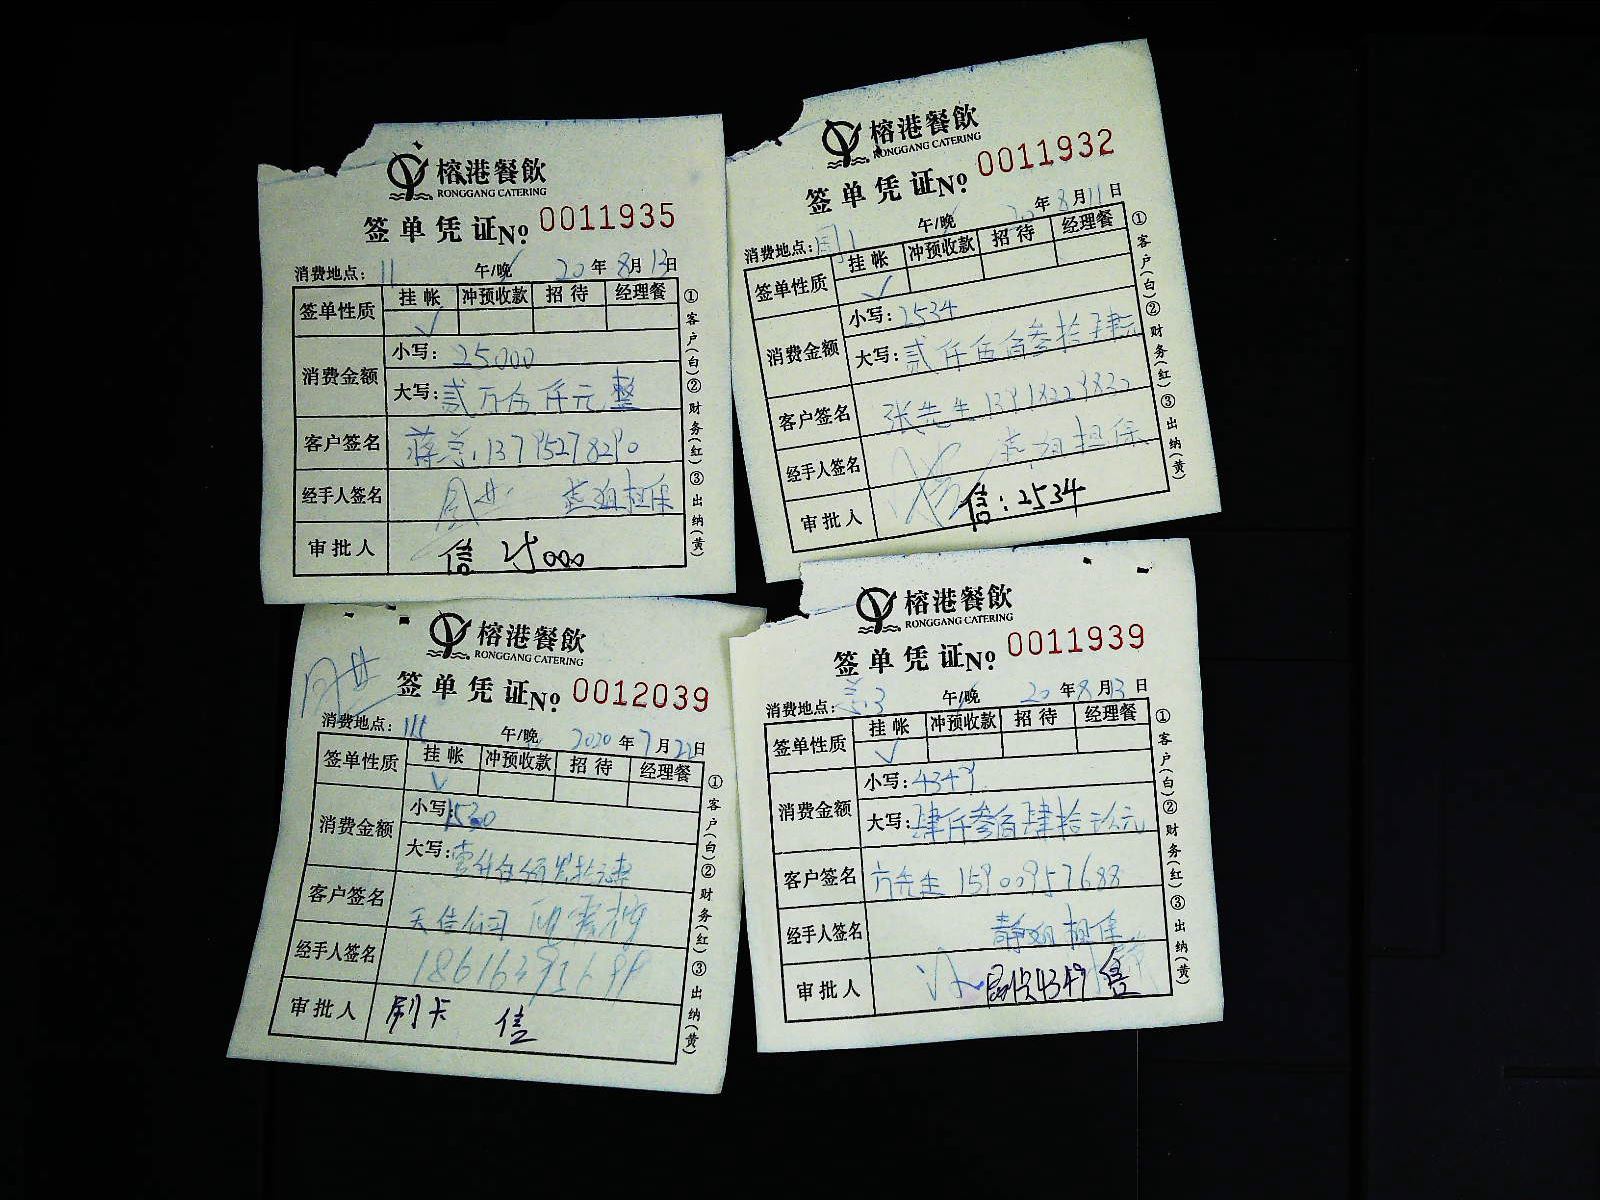 榕港餐飲
RONGGANG CATERING
签单凭证 No 0011935
消费地点： 11 午/晚 20 年 8 月 13 日
签单性质 挂帐 冲预收款 招待 经理餐
√
消费金额 小写： 25000
大写： 贰万伍仟元整
客户签名 蒋总 13795278290
经手人签名 担保
审批人 信 25000
①客户(白)②财务(红)③出纳(黄)
榕港餐飲
RONGGANG CATERING
签单凭证 No 0011932
消费地点： 午/晚 20 年 8 月 11 日
签单性质 挂帐 冲预收款 招待 经理餐
√
消费金额 小写： 2534
大写： 贰仟伍佰叁拾肆元
客户签名 张先生
经手人签名 担保
审批人 信：2534
①客户(白)②财务(红)③出纳(黄)
榕港餐飲
RONGGANG CATERING
签单凭证 No 0012039
消费地点： 午/晚 2020 年 7 月 22 日
签单性质 挂帐 冲预收款 招待 经理餐
√
消费金额 小写： 1530
大写：
客户签名
经手人签名
审批人 刷卡 信
①客户(白)②财务(红)③出纳(黄)
榕港餐飲
RONGGANG CATERING
签单凭证 No 0011939
消费地点： 午/晚 20 年 8 月 13 日
签单性质 挂帐 冲预收款 招待 经理餐
√
消费金额 小写： 4349
大写： 肆仟叁佰肆拾玖元
客户签名 方先生 15900957688
经手人签名 静姐担保
审批人 4349 信
①客户(白)②财务(红)③出纳(黄)